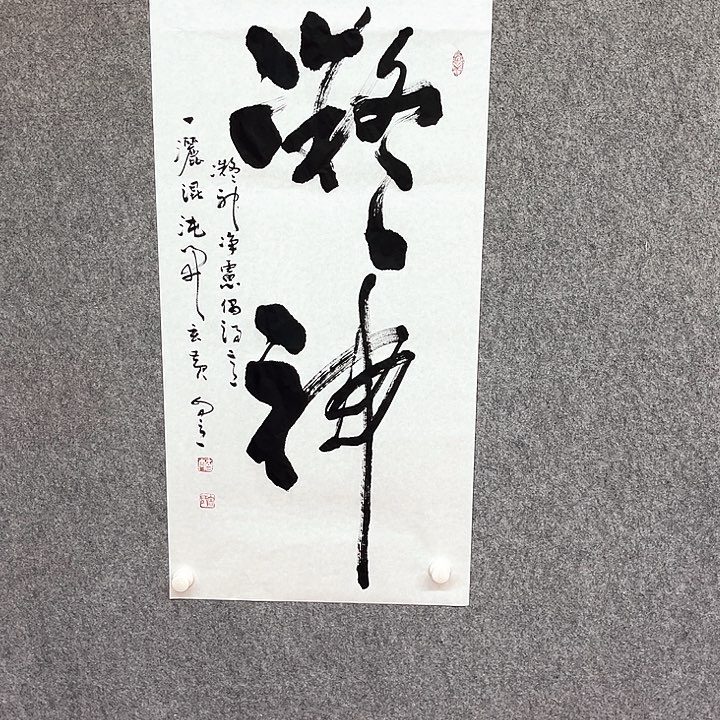 凝神
凝神净慮偶得之
一灑混沌開玄黄